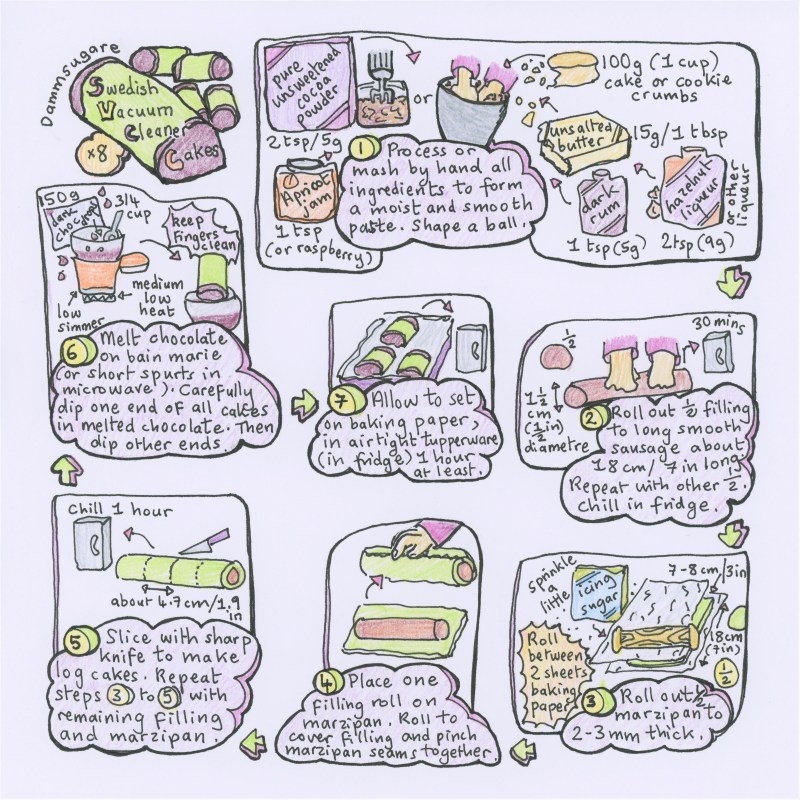 Dammsugare
Swedish
Vacuum
Cleaner
Cakes
x8
Pure
unsweetened
cocoa
powder
2 tsp/5g
or
100g (1 cup)
cake or cookie
crumbs
unsalted
butter
15g/1 tbsp
Apricot
jam
1 tsp
(or raspberry)
dark
rum
1 tsp (5g)
hazelnut
liqueur
or other
liqueur
2tsp (9g)
1 Process or
mash by hand all
ingredients to form
a moist and smooth
paste. Shape a ball.
1/2
30 mins
1 1/2
cm
(1/2 in)
diametre
2 Roll out 1/2 filling
to long smooth
sausage about
18 cm/ 7 in long
Repeat with other 1/2.
Chill in fridge.
sprinkle
a little
icing
sugar
7-8 cm/3in
18cm
(7in)
1/2
Roll
between
2 sheets
baking
paper
3 Roll out 1/2
marzipan to
2-3 mm thick.
4 Place one
filling roll on
marzipan. Roll to
cover filling and pinch
marzipan seams together.
Chill 1 hour
about 4.7cm/1.9
in
5 Slice with sharp
knife to make
log cakes. Repeat
steps 3 to 5 with
remaining filling
and marzipan.
150g
dark
choc drops
3/4
cup
keep
fingers
clean
low
simmer
medium
low
heat
6 Melt chocolate
on bain marie
(or short spurts in
microwave). Carefully
dip one end of all cakes
in melted chocolate. Then
dip other ends.
7 Allow to set
on baking paper,
in airtight tupperware
(in fridge) 1 hour
at least.